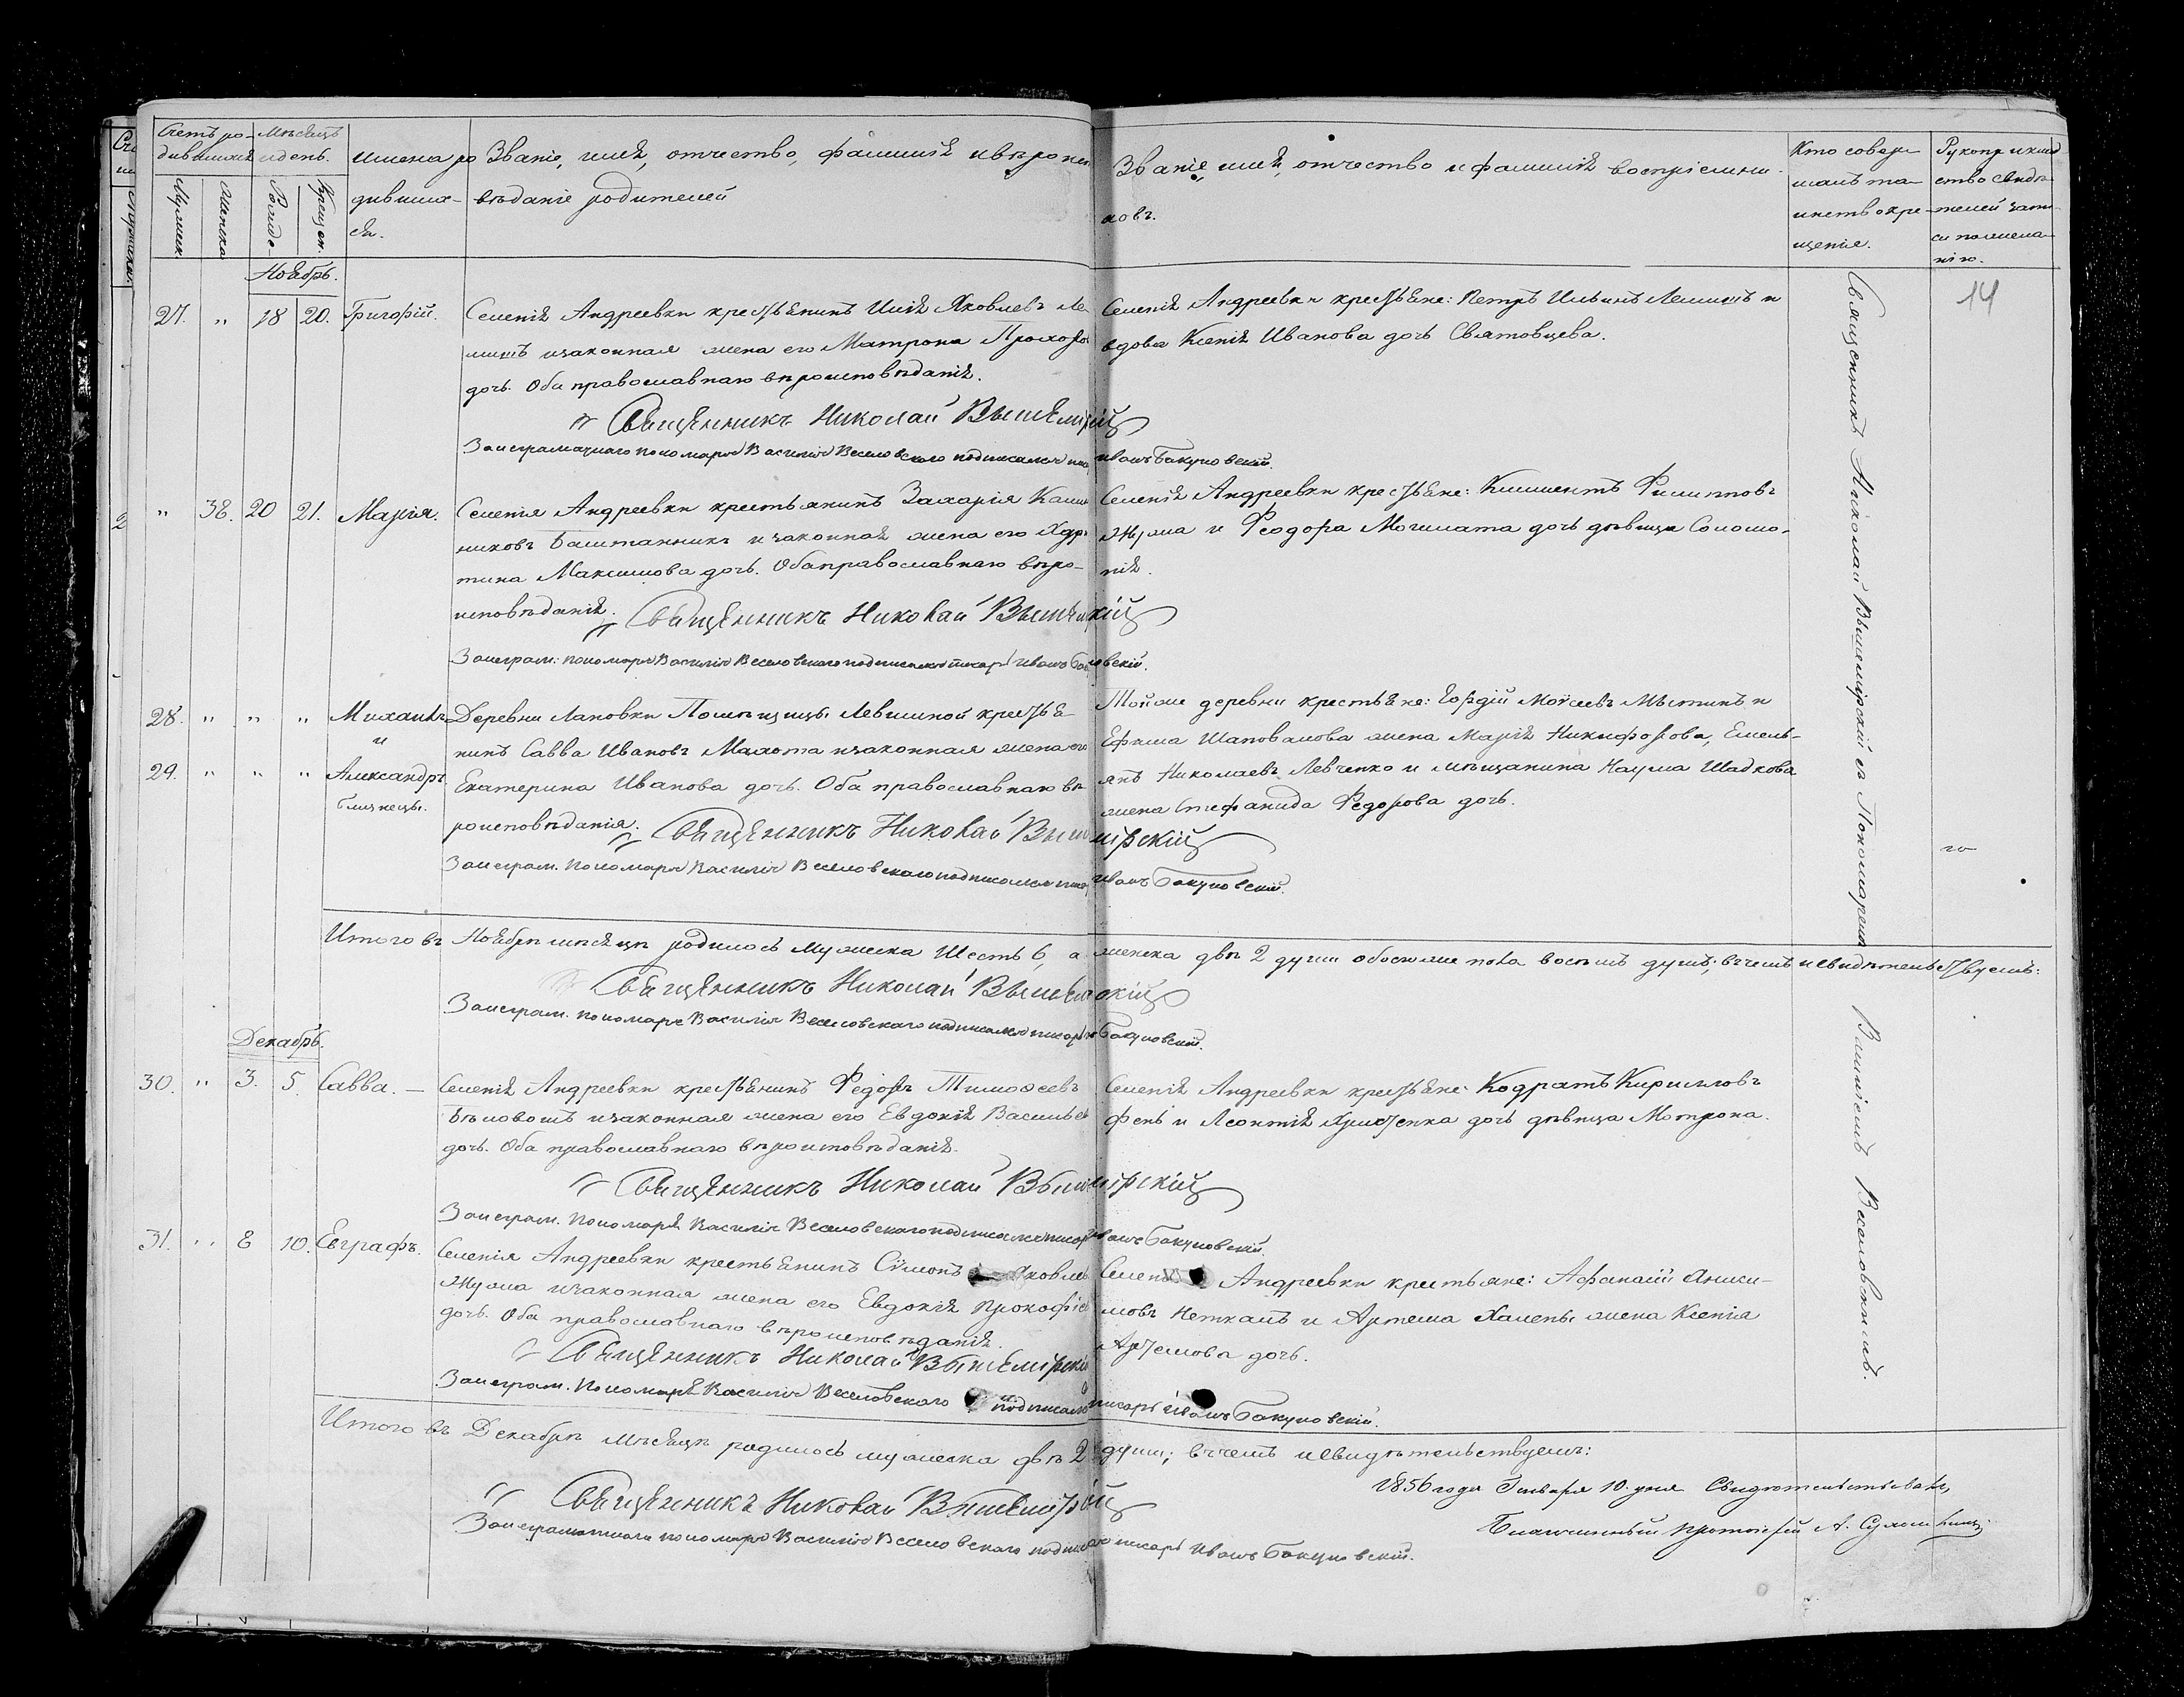 Счетъ ро-
дившихся
Мѣсяцъ
и день.
Имена ро
дивших-
ся.
Званіе, имя, отчество, фамилія и вѣроиспо
вѣданіе родителей
Званіе, имя, отчество и фамилія воспріемни-
ковъ.
Кто совер-
шалъ та-
инство кре-
щенія.
Рукоприклад
ство свидѣ-
телей запи-
си по желa-
нію.
Мужеск.
Женска
Рожде.
Крещен.
14
Ноябрь.
27. " 18 20. Григорій.
Селенія Андреевки крестьянинъ Илія Яковлевъ Ле-
мишъ и законная жена его Матрона Прохоро
дочь. Оба православнаго вѣроисповѣданія.
Селенія Андреевки крестьяне: Петръ Ильинъ Лемишъ и
вдова Ксенія Иванова дочь Святовцева.
Священникъ Николай Вышемірскій
За неграмотнаго пономаря Василія Веселовскаго подписался Иванъ Бакуновскій.
" 38. 20 21. Марія.
Селенія Андреевки крестьянинъ Захарія Калин
никовъ Баштанникъ и законная жена его Хдри
тина Максимова дочь. Оба православнаго вѣро-
исповѣданія.
Селенія Андреевки крестьяне: Климентъ Филипповъ
Жужа и Феодора Могилата дочь дѣвица Соломо-
нія.
Священникъ Николай Вышемірскій
За неграм: пономаря Василія Веселовскаго подписался писарь Иванъ Бакуновскій.
28. " " " Михаилъ
и
29. " " " Александръ
близнецы.
Деревни Лановки Помѣщицы Левшиной крестья-
нинъ Савва Ивановъ Махота и законная жена его
Екатерина Иванова дочь. Оба православнаго вѣ
роисповѣданія.
Тойже деревни крестьяне: Гордій Моѵсеевъ Мѣтинъ и
Ефима Шаповалова жена Марія Никифорова, Емель-
янъ Николаевъ Левченко и мѣщанина Наума Шадкова
жена Стефанида Федорова дочь.
Священникъ Николай Вышемірскій
За неграм. пономаря Василія Веселовскаго подписался Иванъ Бакуновскій.
Итого въ Ноябрѣ мѣсяцѣ родилось мужеска Шесть 6, а женска двѣ 2 души обоего же пола восемъ душъ; въ чемъ и свидѣтельствуемъ:
Священникъ Николай Вышемірскій
За неграм. пономаря Василія Веселовскаго подписался писарь Бакуновскій.
Декабрь.
30. " 3. 5. Савва. —
Селенія Андреевки крестьянинъ Федоръ Тимоѳеевъ
Бѣловолъ и законная жена его Евдокія Васильев
дочь. Оба православнаго вѣроисповѣданія.
Селенія Андреевки крестьяне: Кодратъ Кирилловъ
Фень и Леонтія Христенка дочь дѣвица Мотрона.
Священникъ Николай Вышемірскій
За неграм. пономаря Василія Веселовскаго подписался писарь Иванъ Бакуновскій.
31. " 8 10. Евграфъ.
Селенія Андреевки крестьянинъ Сѵмонъ Яковлев
Жужа и законная жена его Евдокія Прокофіев
дочь. Оба православнаго вѣроисповѣданія.
Селенія Андреевки крестьяне: Афанасій Аниси-
мовъ Неткалъ и Артема Халепы жена Ксенія
Артемова дочь.
Священникъ Николай Вышемірскій
За неграм. пономаря Василія Веселовскаго подписался писарь Иванъ Бакуновскій.
Итого въ Декабрѣ мѣсяцѣ родилось мужеска двѣ 2 души; въ чемъ и свидѣтельствуемъ:
Священникъ Николай Вышемірскій
За неграмотнаго пономаря Василія Веселовскаго подписался писарь Иванъ Бакуновскій.
1856 года Генваря 10. дня Свидѣтельствовалъ,
Благочинный протоіерей А.
Священникъ Николай Вышемірскій съ Пономаремъ Василіемъ Веселовскимъ.